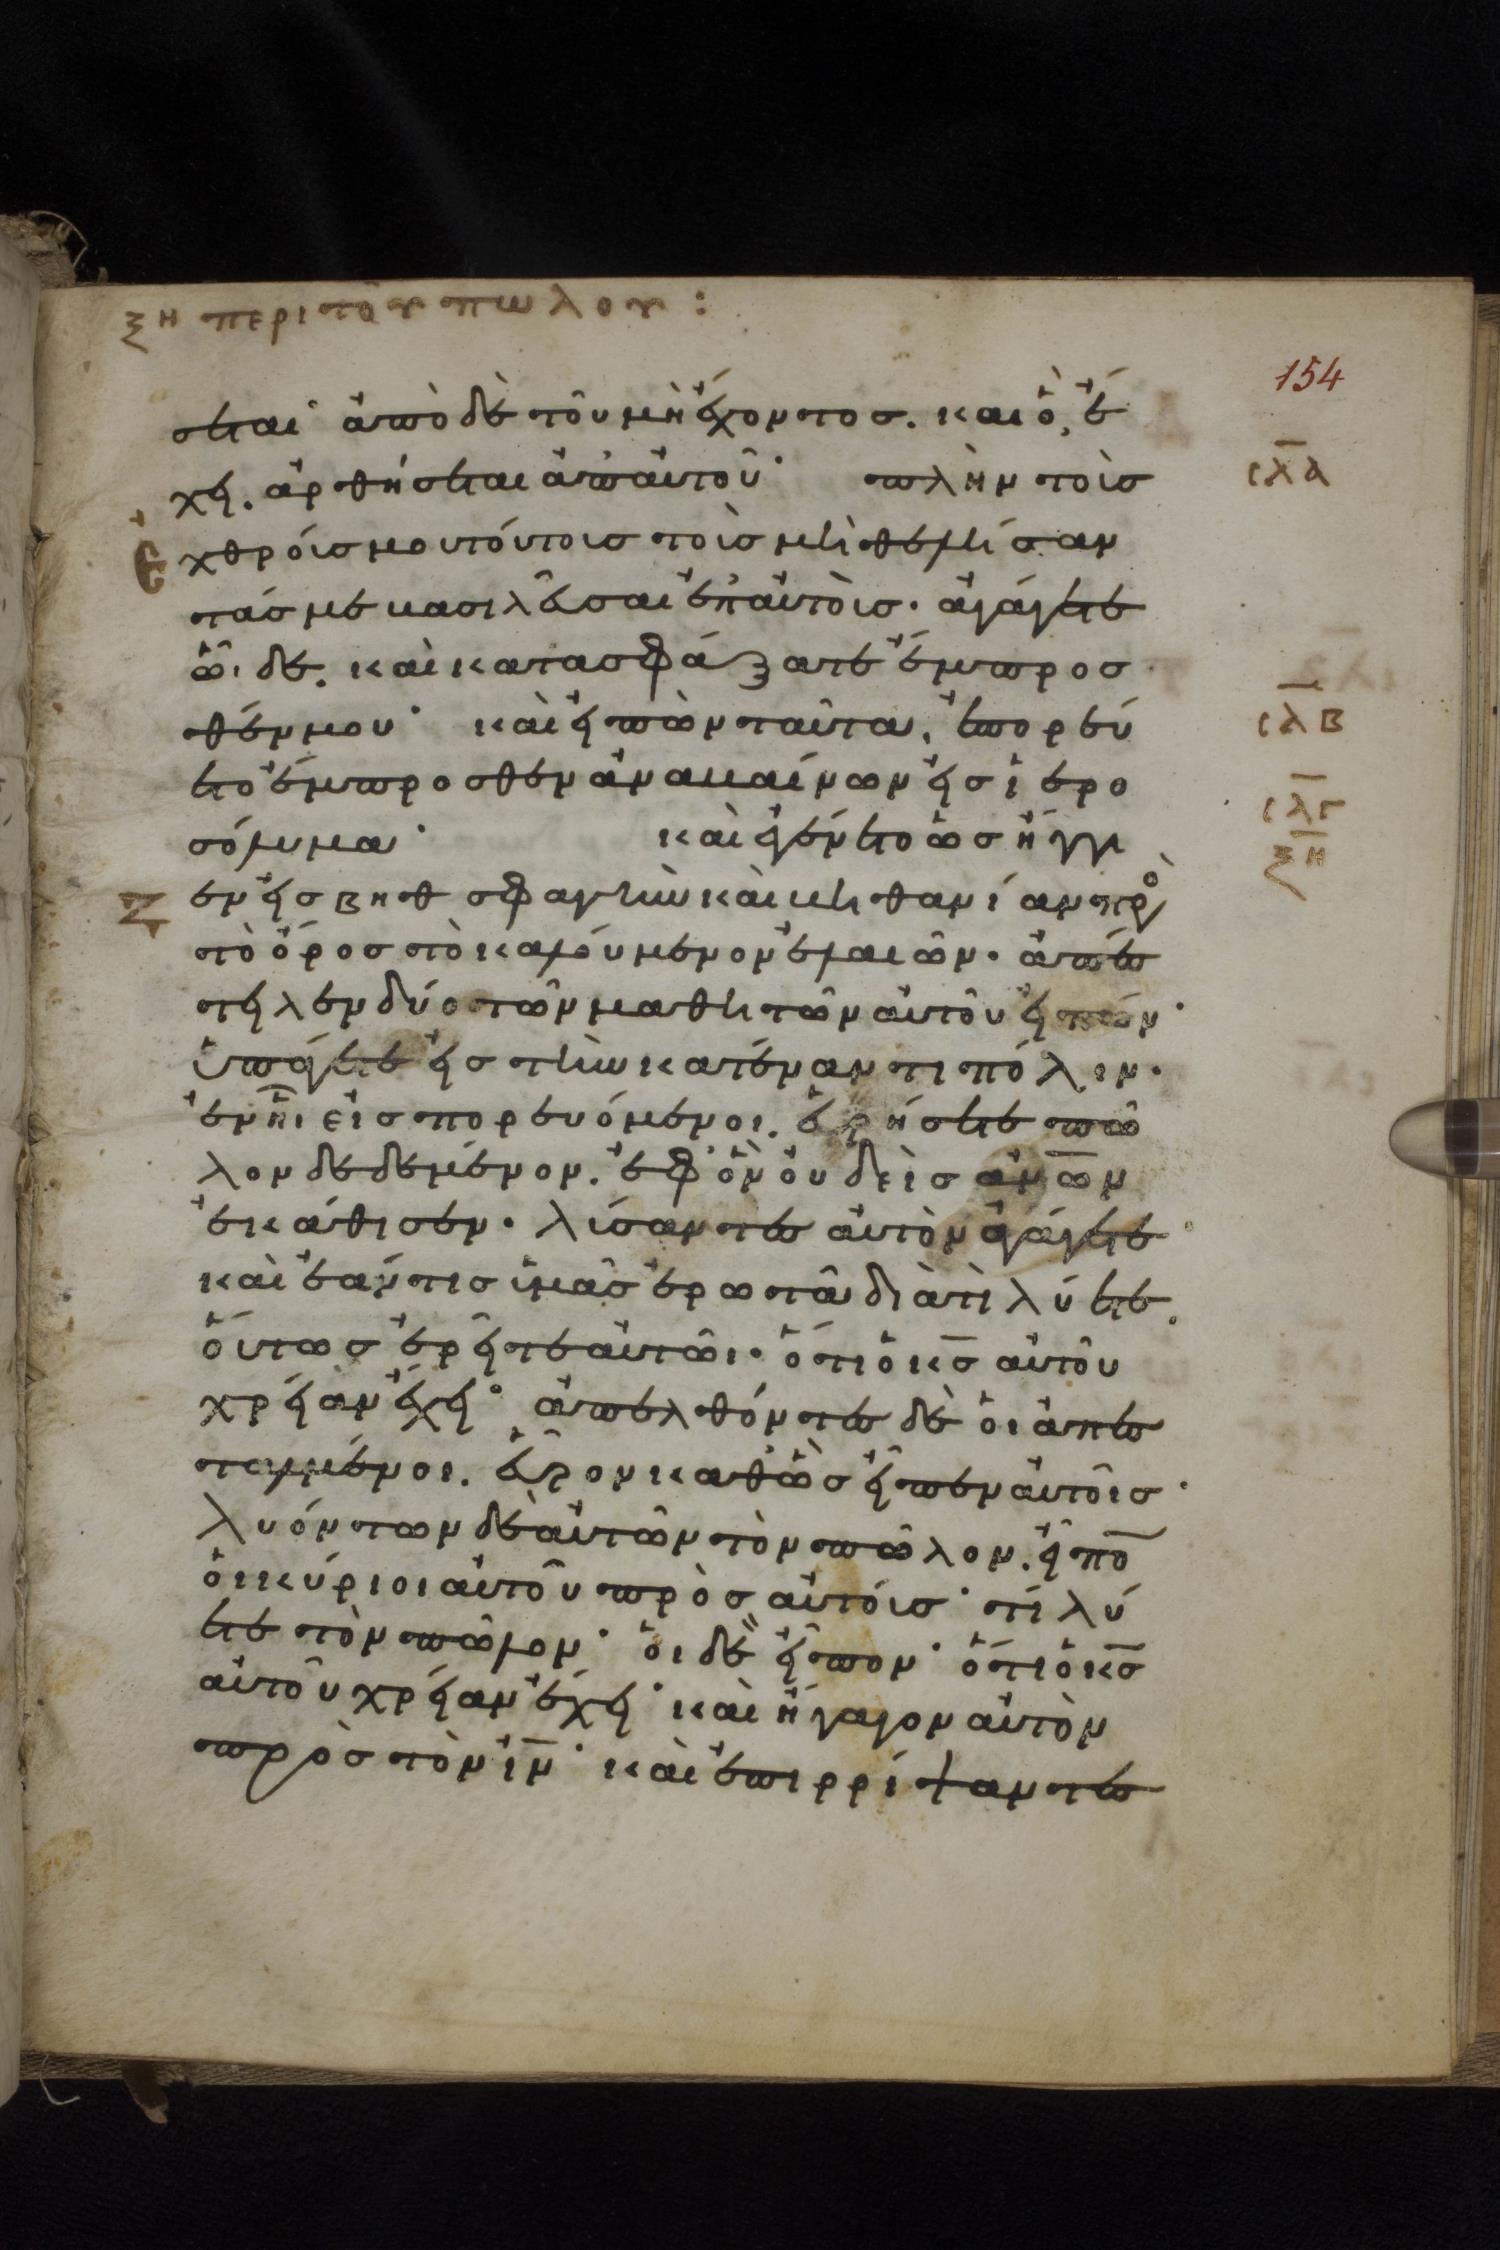 ξη περι του πωλου :
154
σεται· ἀπὸ δὲ τοῦ μὴ ἔχοντος. και ὃ, ἔ
χει. ἀρθήσεται ἀπ' ἀυτοῦ· πλὴν τοὺσ
σλα
Ἐχθρόισ μου τόυτοισ τοὶσ μὴ θελήσαν
τάσ με βασιλεῦσαι ἐπ' ἀυτὸισ. ἀγάγετε
ὧδε. καὶ κατασφάξατε ἔμπροσ
θέν μου· καὶ ἐιπὼν ταῦτα, ἐπορεύ
σλβ
ετο ἔμπροσθεν ἀναβαίνων ἐισ ἱερο
σλγ
σόλυμα· καὶ ἐγένετο ὡσ ἤγγι
ξη
Ζ
εν ἐισ βηθσφαγὴν καὶ βηθανίαν πρὸ
τὸ ὄροσ τὸ καλούμενον ἐλαιῶν. ἀπέσ
τειλεν δύο τῶν μαθητῶν ἀυτοῦ ἐιπών·
ὑπάγετε ἐισ τὴν κατέναντι πόλιν.
ἐν ἧι εἰσπορευόμενοι. ἑυρήσετε πῶ
λον δεδεμένον. ἐφ' ὃν ὀυδεὶσ ἀνῶν
ἐκάθισεν. λύσαντεσ ἀυτὸν ἀγάγετε·
καὶ ἐάν τισ ὑμᾶσ ἐρωτᾶ διὰ τὶ λύετε.
ὅυτωσ ἐρεῖτε ἀυτῶι. ὅτι ὁ κσ ἀυτοῦ
χρείαν ἔχει· ἀπελθόντεσ δὲ ὁι ἀπεσ
ταλμένοι. ἑῦρον καθὼσ ἐῖπεν ἀυτοῖσ·
λυόντων δὲ ἀυτῶν τὸν πῶλον. ἐῖπο
ὁι κύριοι ἀυτοῦ πρὸσ ἀυτόισ· τί λύ
ετε τὸν πῶλον· ὁι δὲ ἐῖπον· ὅτι ὁ κσ
ἀυτοῦ χρείαν ἔχει· καὶ ἤγαγον ἀυτὸν
πρὸσ τὸν ἰν· καὶ ἐπιρρίψαντεσ